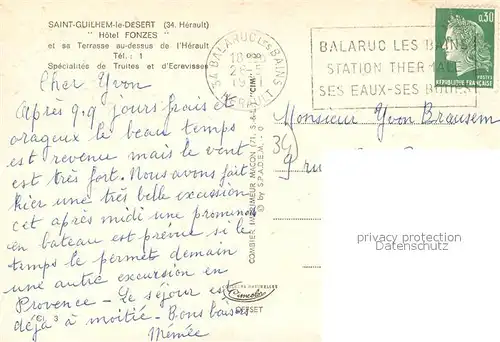 SAINT-GUILHEM-le-DESERT (34. Hérault)
" Hôtel FONZES "
et sa Terrasse au-dessus de l'Hérault
Tél. : 1
Spécialités de Truites et d'Ecrevisses
Cher Yvon
Après q.q jours frais et
orageux le beau temps
est revenu mais le vent
est très fort. Nous avons fait
hier une très belle excursion
cet après midi une promenade
en bateau est prévue si le
temps le permet demain
une autre excursion en
Provence - Le séjour est
déjà à moitié - Bons baisers
Mémée
COMBIER IMPRIMEUR MACON
© by S.P.A.D.E.M.
OFFSET
BALARUC LES BAINS
18
BALARUC LES BAINS
STATION THERMALE
SES EAUX-SES BOUES
0,30
POSTES
REPUBLIQUE FRANCAISE
Monsieur Yvon
34
9 rue
privacy protection
Datenschutz